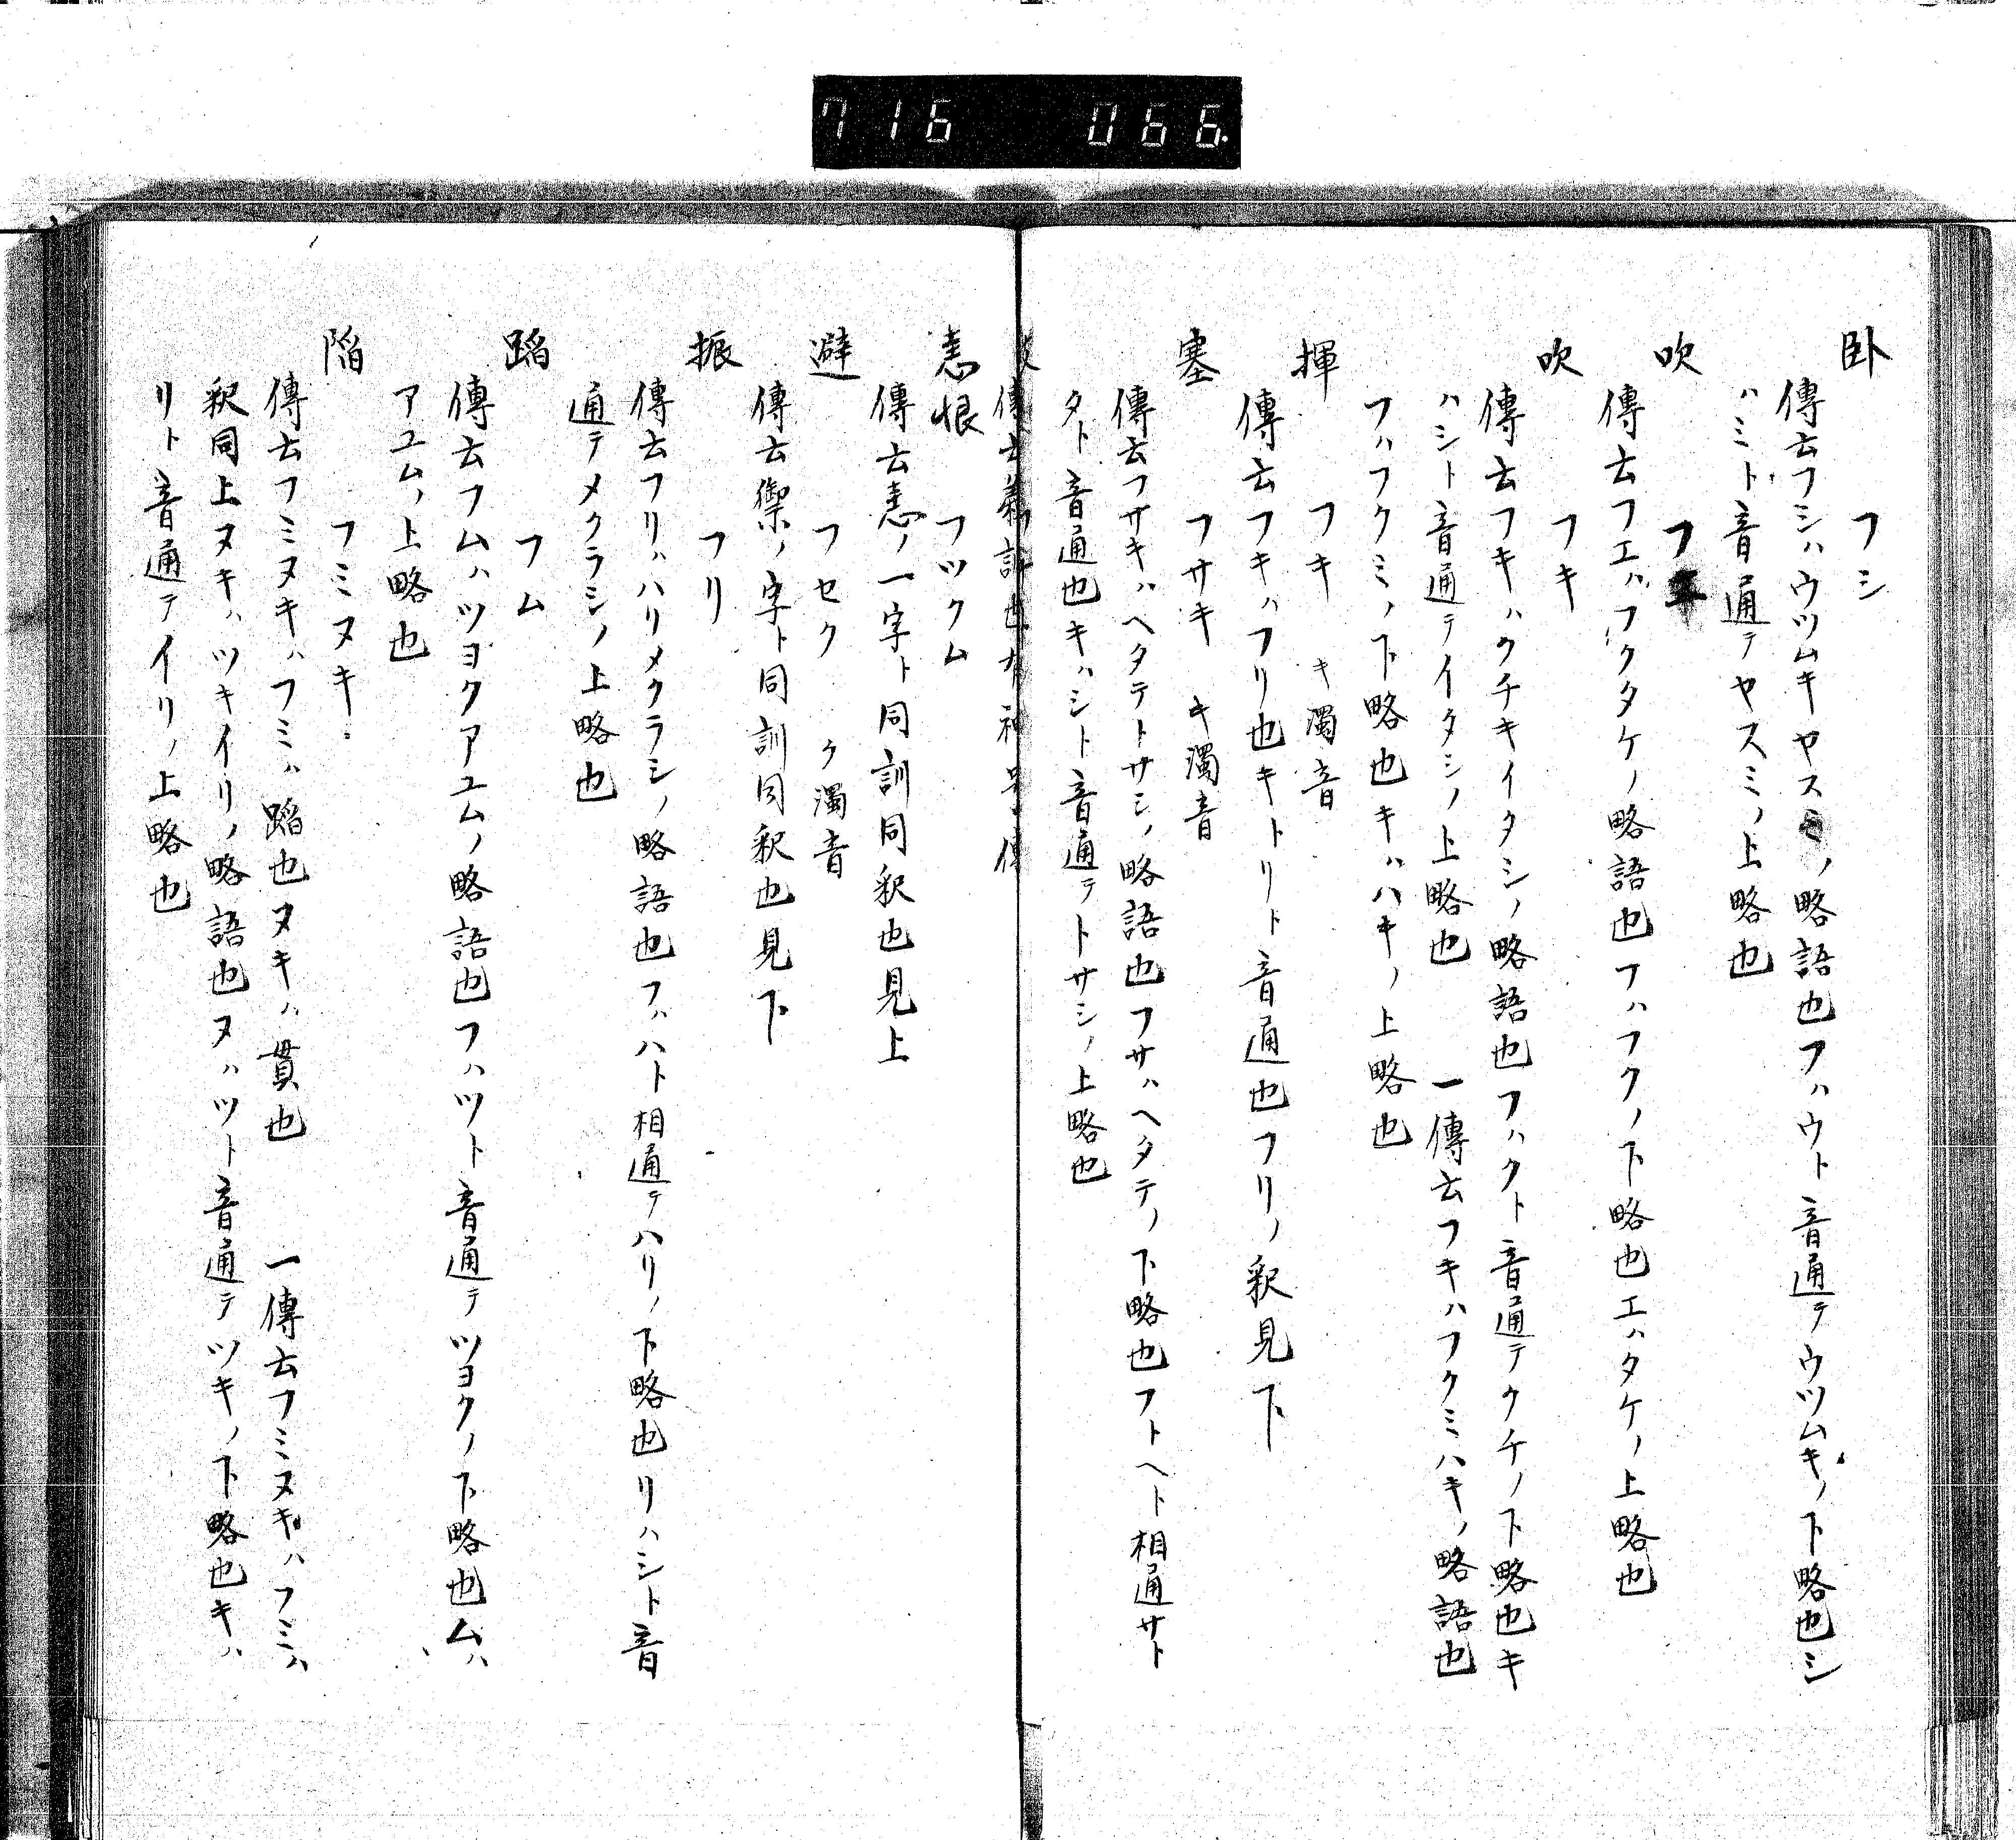 716 066
臥 フシ
傳云フシハウツムキヤスミノ略語也フハウト音通テウツムキノ下略也シ
ハミト音通テヤスミノ上略也
吹 フエ
傳云フエハフクタケノ略語也フハフクノ下略也エハタケノ上略也
吹 フキ
傳云フキハクチキイタシノ略語也フハクト音通テクチノ下略也キ
ハシト音通テイタシノ上略也 一傳云フキハフクミハキノ略語也
フハフクミノ下略也キハハキノ上略也
揮 フキ キ濁音
傳云フキハフリ也キトリト音通也フリノ釈見下
塞 フサキ キ濁音
傳云フサキハヘタテトサシノ略語也フサハヘタテノ下略也フトヘト相通サト
タト音通也キハシト音通テトサシノ上略也
傳云
恚恨 フツクム
傳云恚ノ一字ト同訓同釈也見上
避 フセク ク濁音
傳云禦ノ字ト同訓同釈也見下
振 フリ
傳云フリハハリメクラシノ略語也フハハト相通テハリノ下略也リハシト音
通テメクラシノ上略也
蹈 フム
傳云フムハツヨクアユムノ略語也フハツト音通テツヨクノ下略也ムハ
アユムノ上略也
陷 フミヌキ
傳云フミヌキハフミハ蹈也ヌキハ貫也 一傳云フミヌキハフミハ
釈同上ヌキハツキイリノ略語也ヌハツト音通テツキノ下略也キハ
リト音通テイリノ上略也